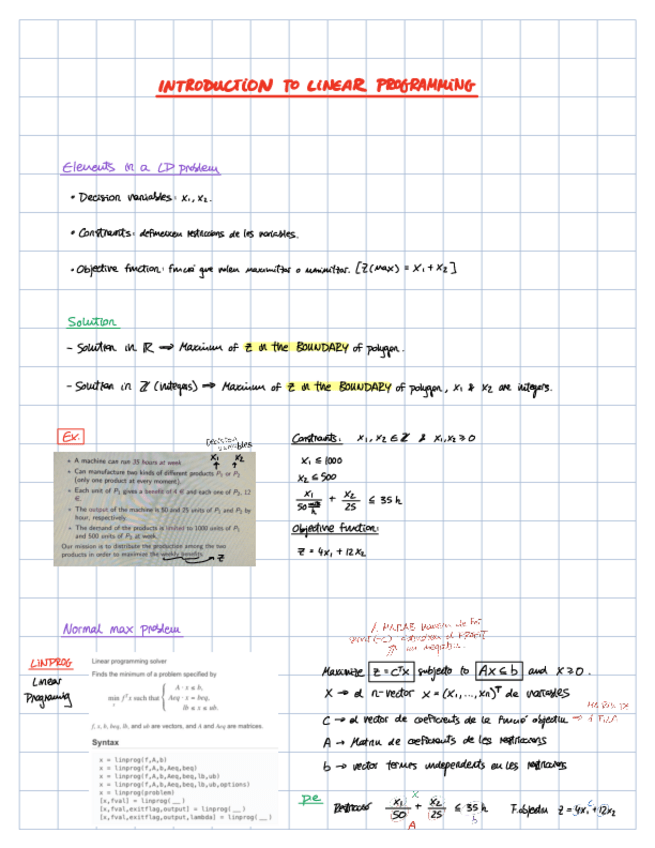 INTRODUCTION TO LINEAR PROGRAMMING
Elements in a LP problem
• Decision variables: x₁, x₂.
• Constraints: defineixen restriccions de les variables.
• Objective function: funció que volem maximitzar o minimitzar. [Z(max) = x₁ + x₂]
Solution
- Solution in ℝ ⇒ Maximum of Z in the BOUNDARY of polygon.
- Solution in ℤ (integers) ⇒ Maximum of Z in the BOUNDARY of polygon, x₁ & x₂ are integers.
Ex.
Decision variables
x₁ x₂
• A machine can run 35 hours at week.
• Can manufacture two kinds of different products P₁ or P₂
(only one product at every moment).
• Each unit of P₁ gives a benefit of 4 € and each one of P₂, 12
€.
• The output of the machine is 50 and 25 units of P₁ and P₂ by
hour, respectively.
• The demand of the products is limited to 1000 units of P₁
and 500 units of P₂ at week.
Our mission is to distribute the production among the two
products in order to maximize the weekly benefits. → Z
Constraints: x₁, x₂ ∈ ℤ & x₁, x₂ ≥ 0
x₁ ≤ 1000
x₂ ≤ 500
x₁/50 + x₂/25 ≤ 35 h
Objective function:
Z = 4x₁ + 12x₂
Normal max problem
LINPROG
Linear
Programing
Linear programming solver
Finds the minimum of a problem specified by
min f^T x such that { A · x ≤ b,
Aeq · x = beq,
lb ≤ x ≤ ub.
f, x, b, beq, lb, and ub are vectors, and A and Aeq are matrices.
Syntax
x = linprog(f,A,b)
x = linprog(f,A,b,Aeq,beq)
x = linprog(f,A,b,Aeq,beq,lb,ub)
x = linprog(f,A,b,Aeq,beq,lb,ub,options)
x = linprog(problem)
[x,fval] = linprog(__)
[x,fval,exitflag,output] = linprog(__)
[x,fval,exitflag,output,lambda] = linprog(__)
Maximize z = cᵀx subjecte to Ax ≤ b and x ≥ 0.
X → el n-vector x = (x₁,...,xn)ᵀ de variables
C → el vector de coeficients de la funció objectiu
A → Matriu de coeficients de les restriccions
b → vector termes independents en les restriccions
pe
Restricció x₁/50 + x₂/25 ≤ 35 h
X
A
b
F. objectiu z = 4x₁ + 12x₂
C